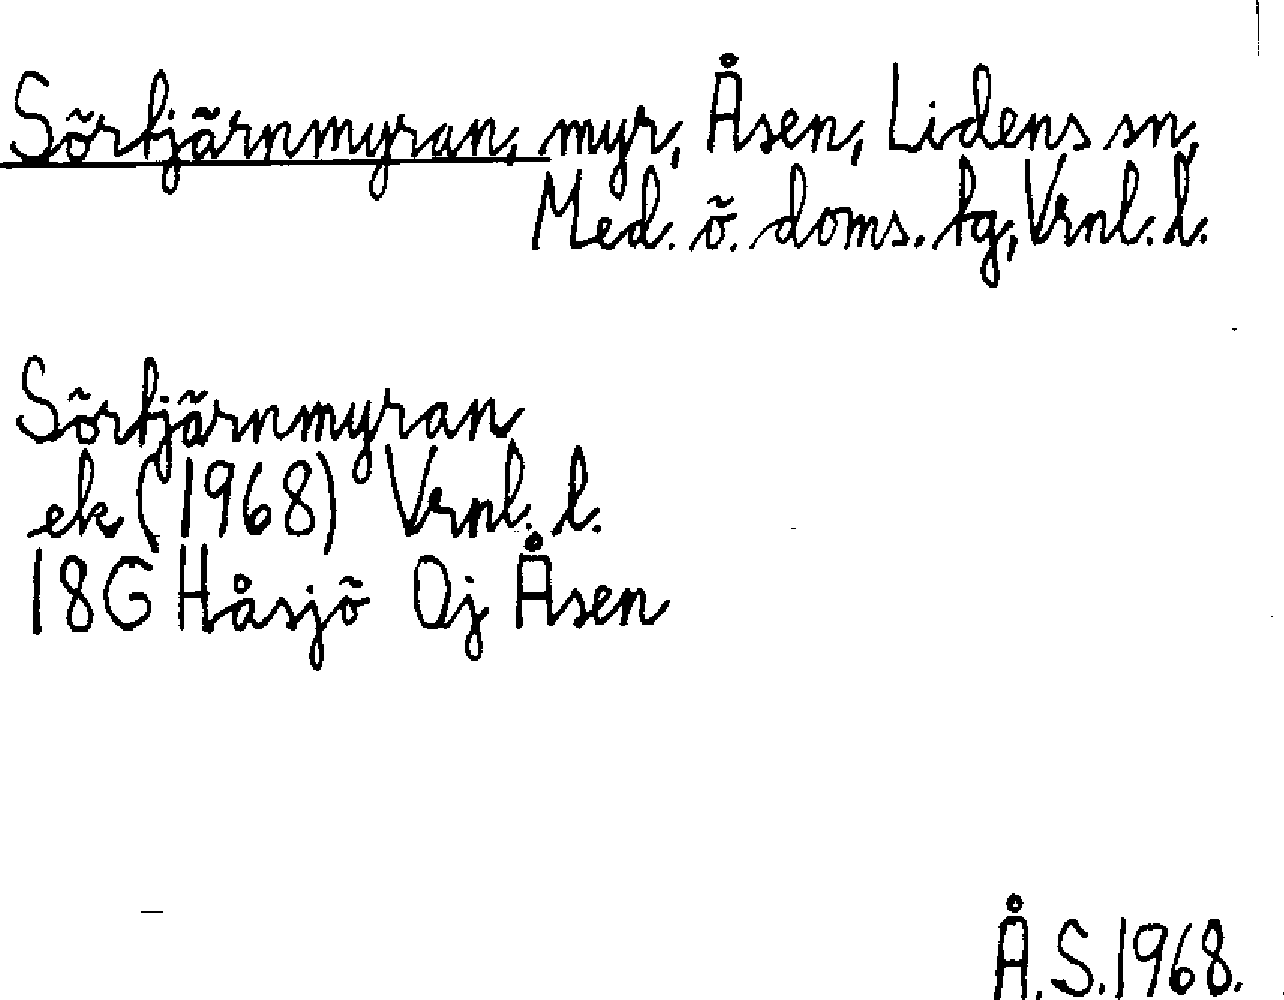 Sörtjärnmyran, myr, Åsen, Lidens sn,
Med. ö. doms. tg, Vrnl. l.
Sörtjärnmyran
ek (1968) Vrnl. l.
18G Håsjö 0j Åsen
Å.S.1968.